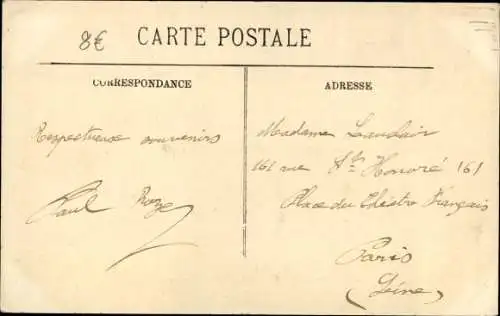 8€
CARTE POSTALE
CORRESPONDANCE
Respectueux souvenirs
Paul
ADRESSE
Madame
161 rue St Honoré 161
Place du Théâtre Français
Paris
(Seine)